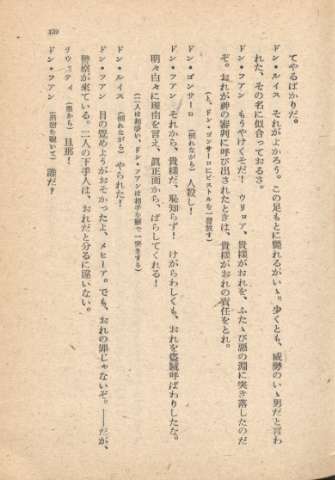 てやるばかりだ。
ドン・ルイス　それがよかろう。この足もとに斃れるがいゝ。歩くとも、威勢のいゝ男だと言わ
れた、その名に似合つておるさ。
ドン・フアン　もうやけくそだ！　ウリョア、貴様がおれを、ふたゝび悪の淵に突き落したのだ
ぞ。おれが神の審判に呼び出されたときは、貴様がおれの責任をとれ。
（と、ドン・ゴンサーロにピストルを一発放す）
ドン・ゴンサーロ　（倒れながら）人殺し！
ドン・フアン　それから、貴様だ、恥知らず！　けがらわしくも、おれを盗賊呼ばわりしたな。
明々白々に理由を言え、真正面から、ばらしてくれる！
（二人は剣を、ドン・フアンは相手を一突きする）
ドン・ルイス　（倒れながら）やられた！
ドン・フアン　目の覚めようがおそかつたよ、メヒーア。でも、おれの罪じゃないぞ。――だが、
警察が来ている。二人の下手人は、おれだと分るに違いない。
リウッティ　（奥から）旦那！
ドン・フアン　（露台を覗いて）誰だ？
220